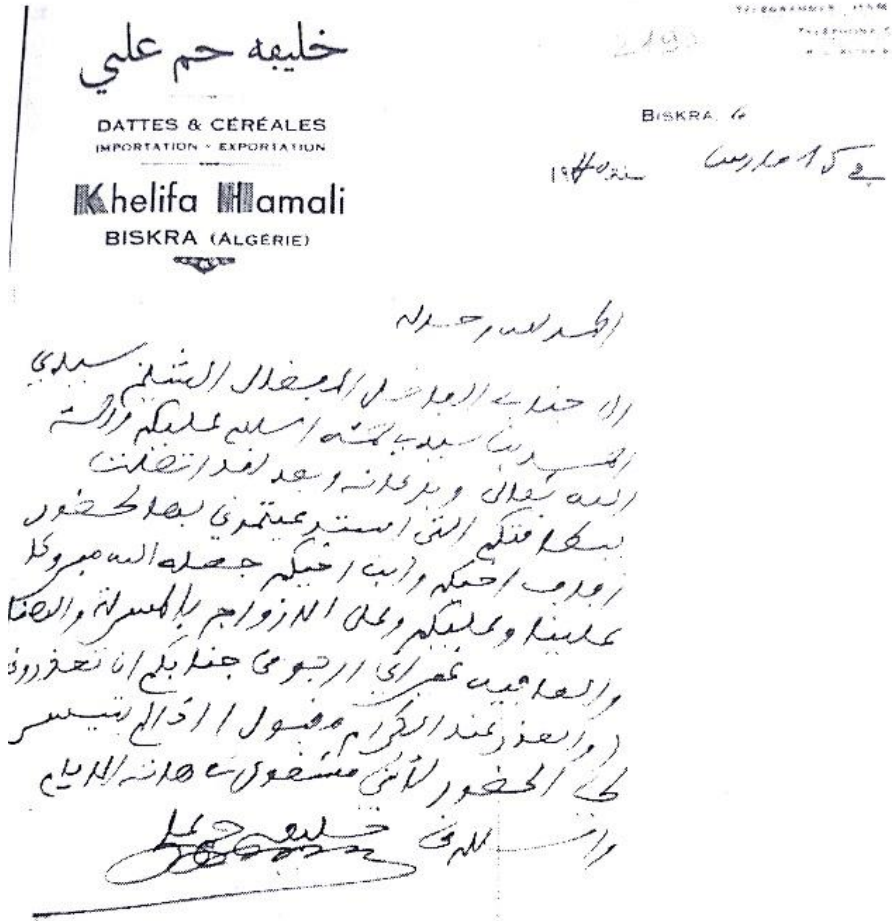 خليفه حم علي
DATTES & CÉRÉALES
IMPORTATION - EXPORTATION
Khelifa Hamali
BISKRA (ALGÉRIE)
BISKRA, le
في 15 مارس سنة
الحمد لله وحده
الى جناب الفاضل المفضال الشيخ سيدي
اسلام عليكم ورحمة
الله تعالى وبركاته وبعد لقد اتصلت
ببطاقتكم التي استدعيتموني بها لحضور
زفاف اخيكم وابن اخيكم جعله الله مبروكا
علينا وعليكم وعلى الازواج بالمسرة والهنا
والعافيه غير اني ارجو من جنابكم ان تعذروني
والعذر عند الكرام مقبول اذا لم يتيسر
لي الحضور لأنني مشغول هاته الايام
والسلام خليفه حم علي